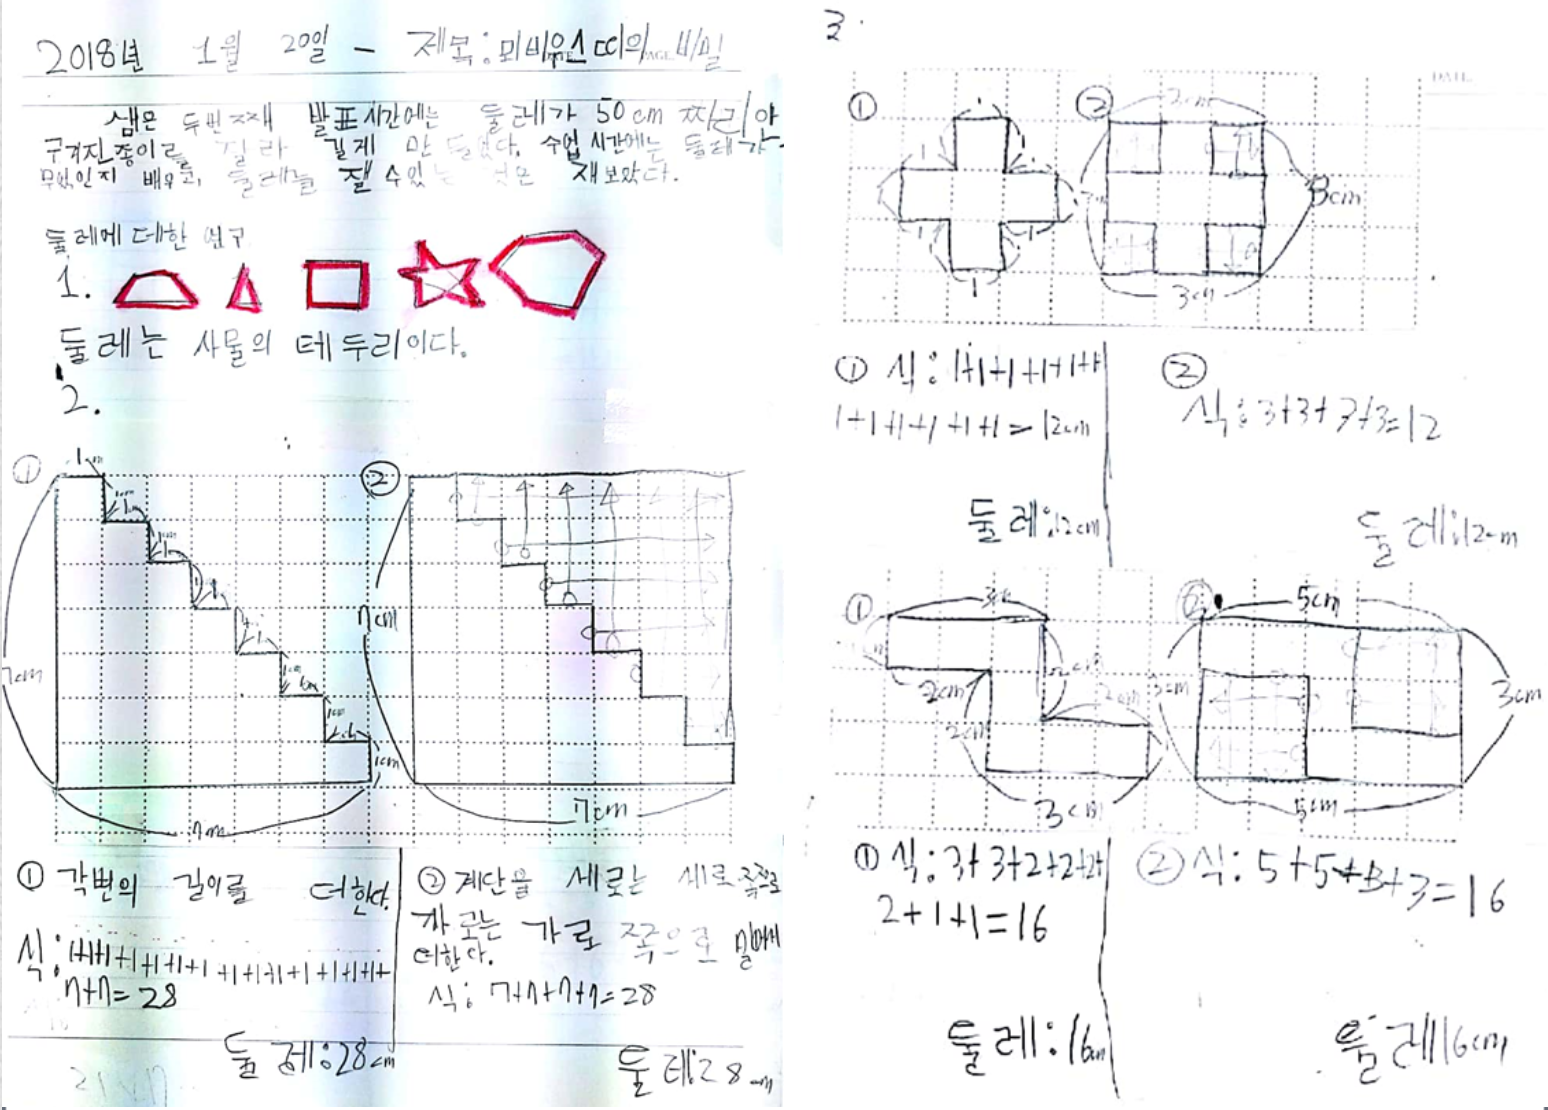 2018년 1월 20일 - 제목: 뫼비우스 띠의 비밀
샘은 두번째 발표시간에는 둘레가 50cm 찌리 안
구겨진 종이를 잘라 길게 만들었다. 수업 시간에는 둘레가
무엇인지 배우고, 둘레를 잴 수 있는 것은 재보았다.
둘레에 대한 연구
1.
둘레는 사물의 테두리이다.
2.
①
②
7cm
7cm
7cm
7cm
① 각변의 길이를 더한다.
식: 1+1+1+1+1+1+1+1+1+1+1+1+1+1+
7+7=28
둘레:28cm
② 계단을 세로는 세로쪽으로
가로는 가로 쪽으로 밀어서
더한다.
식: 7+7+7+7=28
둘레:28cm
3.
①
1
②
3cm
3cm
3cm
① 식: 1+1+1+1+1+1+
1+1+1+1+1+1=12cm
둘레:12cm
②
식: 3+3+3+3=12
둘레:12cm
①
2cm
2cm
2cm
2cm
3cm
②
5cm
3cm
3cm
5cm
① 식: 3+3+2+2+2+
2+1+1=16
둘레:16cm
② 식: 5+5+3+3=16
둘레16cm